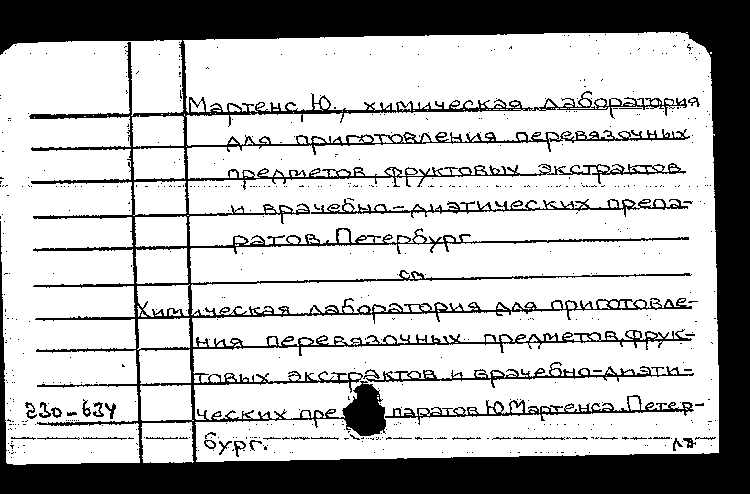 Мартенс, Ю., химическая лаборатория
для приготовления перевязочных
предметов, фруктовых экстрактов
и врачебно-диэтических препа-
ратов. Петербург
см.
Химическая лаборатория для приготовле-
ния перевязочных предметов, фрук-
товых экстрактов и врачебно-диэти-
230-634 ческих пре паратов Ю. Мартенса. Петер-
бург.